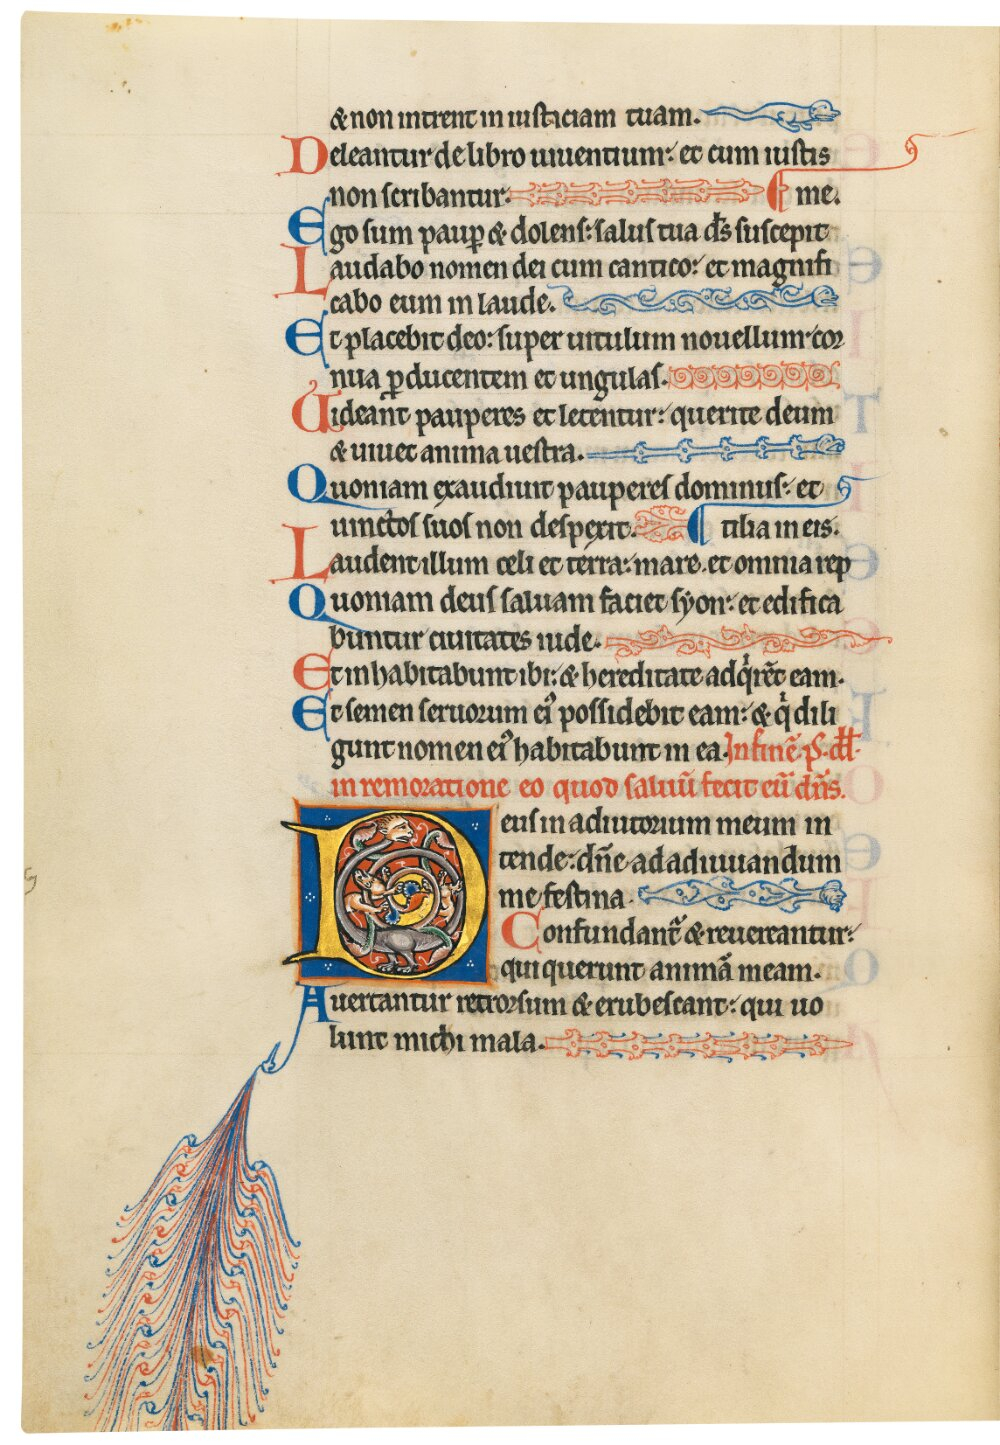 & non intrent in iusticiam tuam.
Deleantur de libro uiuentium: et cum iustis
non scribantur. me.
Ego sum paup & dolens: salus tua ds suscepit
Laudabo nomen dei cum cantico: et magnifi
cabo eum in laude.
Et placebit deo: super uitulum nouellum cor
nua pducentem et ungulas.
Uideant pauperes et letentur: querite deum
& uiuet anima uestra.
Quoniam exaudiuit pauperes dominus: et
uinctos suos non despexit. tilia in eis.
Laudent illum celi et terra: mare. et omnia rep
Quoniam deus saluam faciet syon: et edifica
buntur ciuitates iude.
Et inhabitabunt ibi: & hereditate adqiret eam.
Et semen seruorum ei possidebit eam: & qi dili
gunt nomen ei habitabunt in ea. In finē. ps. dd.
in remoratione eo quod saluū fecit eū dñs.
Deus in adiutorium meum in
tende: dñe ad adiuuandum
me festina.
Confundant & reuereantur:
qui querunt animā meam.
Auertantur retrorsum & erubescant: qui uo
lunt michi mala.